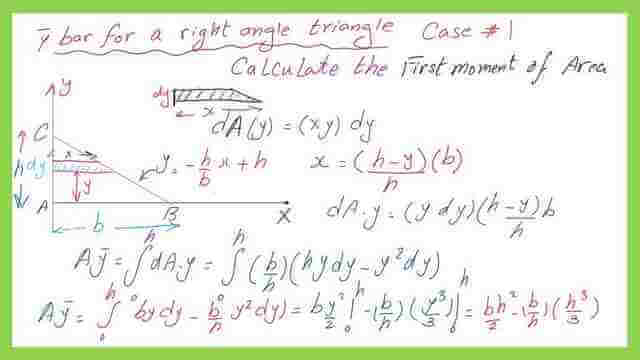 ȳ bar for a right angle triangle Case #1
Calculate the First moment of Area
y
dy
x
dA(y) = (xy) dy
C
h dy
x
y
y = -h/b x + h
x = (h-y)/h (b)
A
B
x
b
dA.y = (y dy)(h-y)/h b
Aȳ = ∫₀ʰ dA.y = ∫₀ʰ (b/h)(hy dy - y² dy)
Aȳ = ∫₀ʰ by dy - b/h y² dy) = b y²/2 |₀ʰ -(b/h)(y³/3)|₀ʰ = bh²/2 -(b/h)(h³/3)